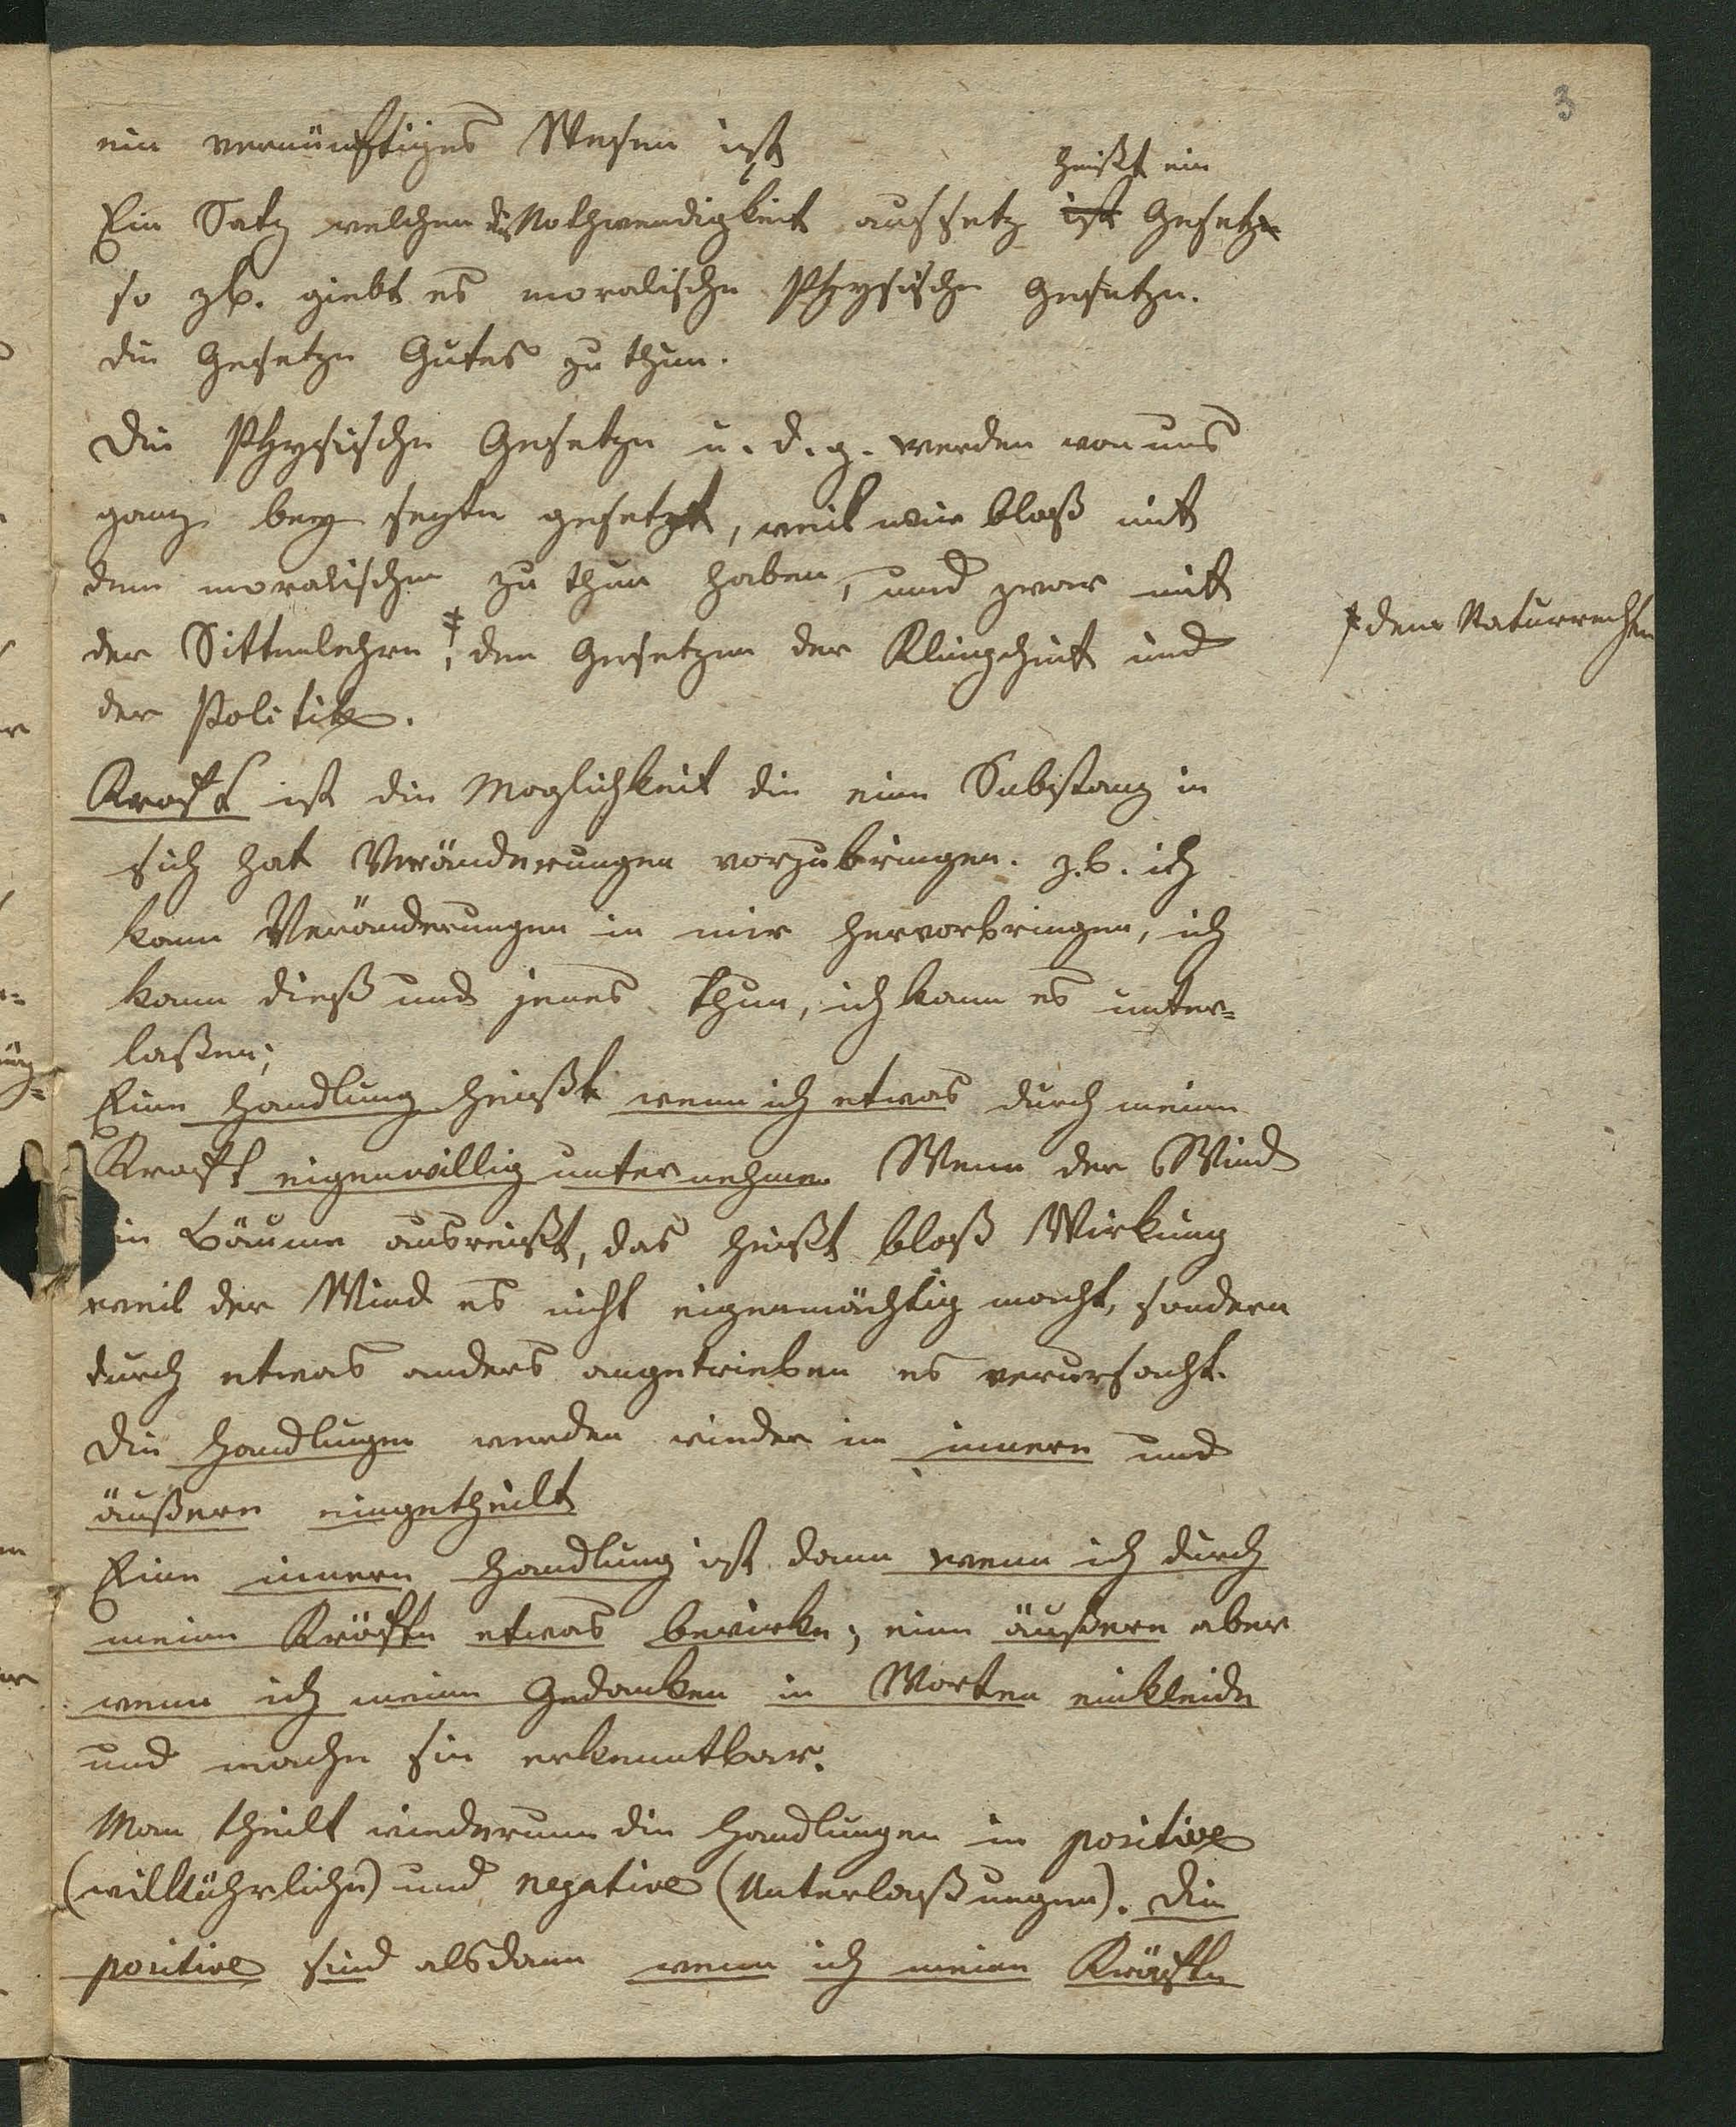 3
ein vernünftiges Wesen ist
heißt ein
Ein Satz welcher die Nothwendigkeit aussetz ist Gesetze
so zb. giebt es moralische Physische Gesetze.
die Gesetze Gutes zu thun.
Die Physische Gesetze u. d. g. werden von uns
ganz bey seyte gesetzt, weil wir bloß mit
dem moralischen zu thun haben, und zwar mit
der Sittenlehre ‡, den Gesetzen der Klugheit und
‡ dem Naturrechten
der Politik.
Kraft ist die Moglichkeit die eine Substanz in
sich hat Veränderungen vorzubringen. z.b. ich
kann Veränderungen in mir hervorbringen, ich
kann dieß und jenes thun, ich kann es unter=
laßen;
Eine Handlung heißt wenn ich etwas durch meine
Kraft eigenwillig unternehme. Wenn der Wind
ein Bäume ausreißt, das heißt bloß Wirkung
weil der Wind es nicht eigenmächtig macht, sondern
durch etwas anders angetrieben es verursacht.
Die Handlungen werden wieder in innere und
äußere eingetheilt
Eine innere Handlung ist dann wenn ich durch
meine Kräfte etwas bewirke; eine äußere aber
wenn ich meine Gedanken in Worten einkleide
und mache sie erkenntbar.
Man theilt wiederum die Handlungen in positive
(willkührliche) und negative (Unterlaßungen). Die
positive sind alsdann wenn ich meine Kräfte